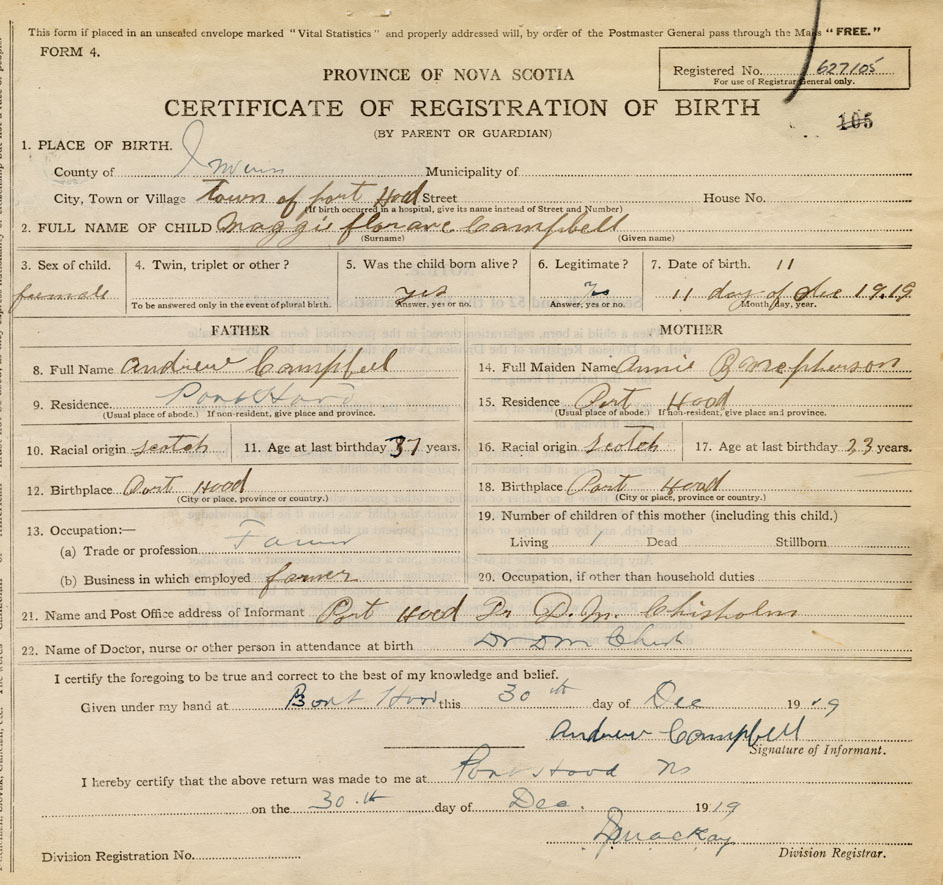 This form if placed in an unsealed envelope marked "Vital Statistics" and properly addressed will, by order of the Postmaster General pass through the Mails "FREE."
FORM 4.
Registered No. 627105
For use of Registrar General only.
PROVINCE OF NOVA SCOTIA
CERTIFICATE OF REGISTRATION OF BIRTH
105
(BY PARENT OR GUARDIAN)
1. PLACE OF BIRTH.
County of Inverness Municipality of
City, Town or Village Town of port Hood Street House No.
(If birth occurred in a hospital, give its name instead of Street and Number)
2. FULL NAME OF CHILD Maggie florance Campbell
(Surname) (Given name)
3. Sex of child. 4. Twin, triplet or other? 5. Was the child born alive? 6. Legitimate? 7. Date of birth. 11
female yes 11 day of dec 1919
To be answered only in the event of plural birth. Answer, yes or no. Answer, yes or no. Month, day, year.
FATHER MOTHER
8. Full Name andrew Campbell 14. Full Maiden Name annie B
9. Residence Port Hood 15. Residence Port Hood
(Usual place of abode.) If non-resident, give place and province. (Usual place of abode.) If non-resident, give place and province.
10. Racial origin scotch 11. Age at last birthday 37 years. 16. Racial origin scotch 17. Age at last birthday 23 years.
12. Birthplace Port Hood 18. Birthplace Port Hood
(City or place, province or country.) (City or place, province or country.)
13. Occupation:— 19. Number of children of this mother (including this child.)
(a) Trade or profession Farmer Living 1 Dead Stillborn
(b) Business in which employed farmer 20. Occupation, if other than household duties
21. Name and Post Office address of Informant Port Hood Dr D. M. Chisholm
22. Name of Doctor, nurse or other person in attendance at birth Dr Dm
I certify the foregoing to be true and correct to the best of my knowledge and belief.
Given under my hand at Port Hood this 30th day of Dec 1919
andrew Campbell
Signature of Informant.
I hereby certify that the above return was made to me at Port Hood NS
on the 30th day of Dec. 1919
Mackay
Division Registration No. Division Registrar.